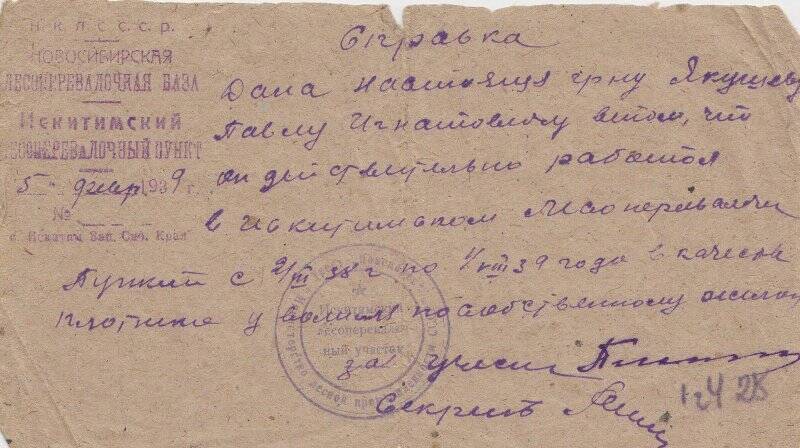 Н.К.Л. С.С.С.Р.
НОВОСИБИРСКАЯ
ЛЕСОПЕРЕВАЛОЧНАЯ БАЗА
Искитимский
ЛЕСОПЕРЕВАЛОЧНЫЙ ПУНКТ
5 февр 1939 г.
№
с. Искитим Зап. Сиб. Края
Справка
Дана настоящя грну Якушеву
Павлу Игнатовичу в том, что
он действительно работал
в Искитимском Лесоперевалочн
Пункте с 2/III 38 г по 1/VIII 39 года в качестве
плотника уволился по собственному желан
зав участк
Секрет
Искитимский
лесоперевалоч-
ный участок
1 г 4 28